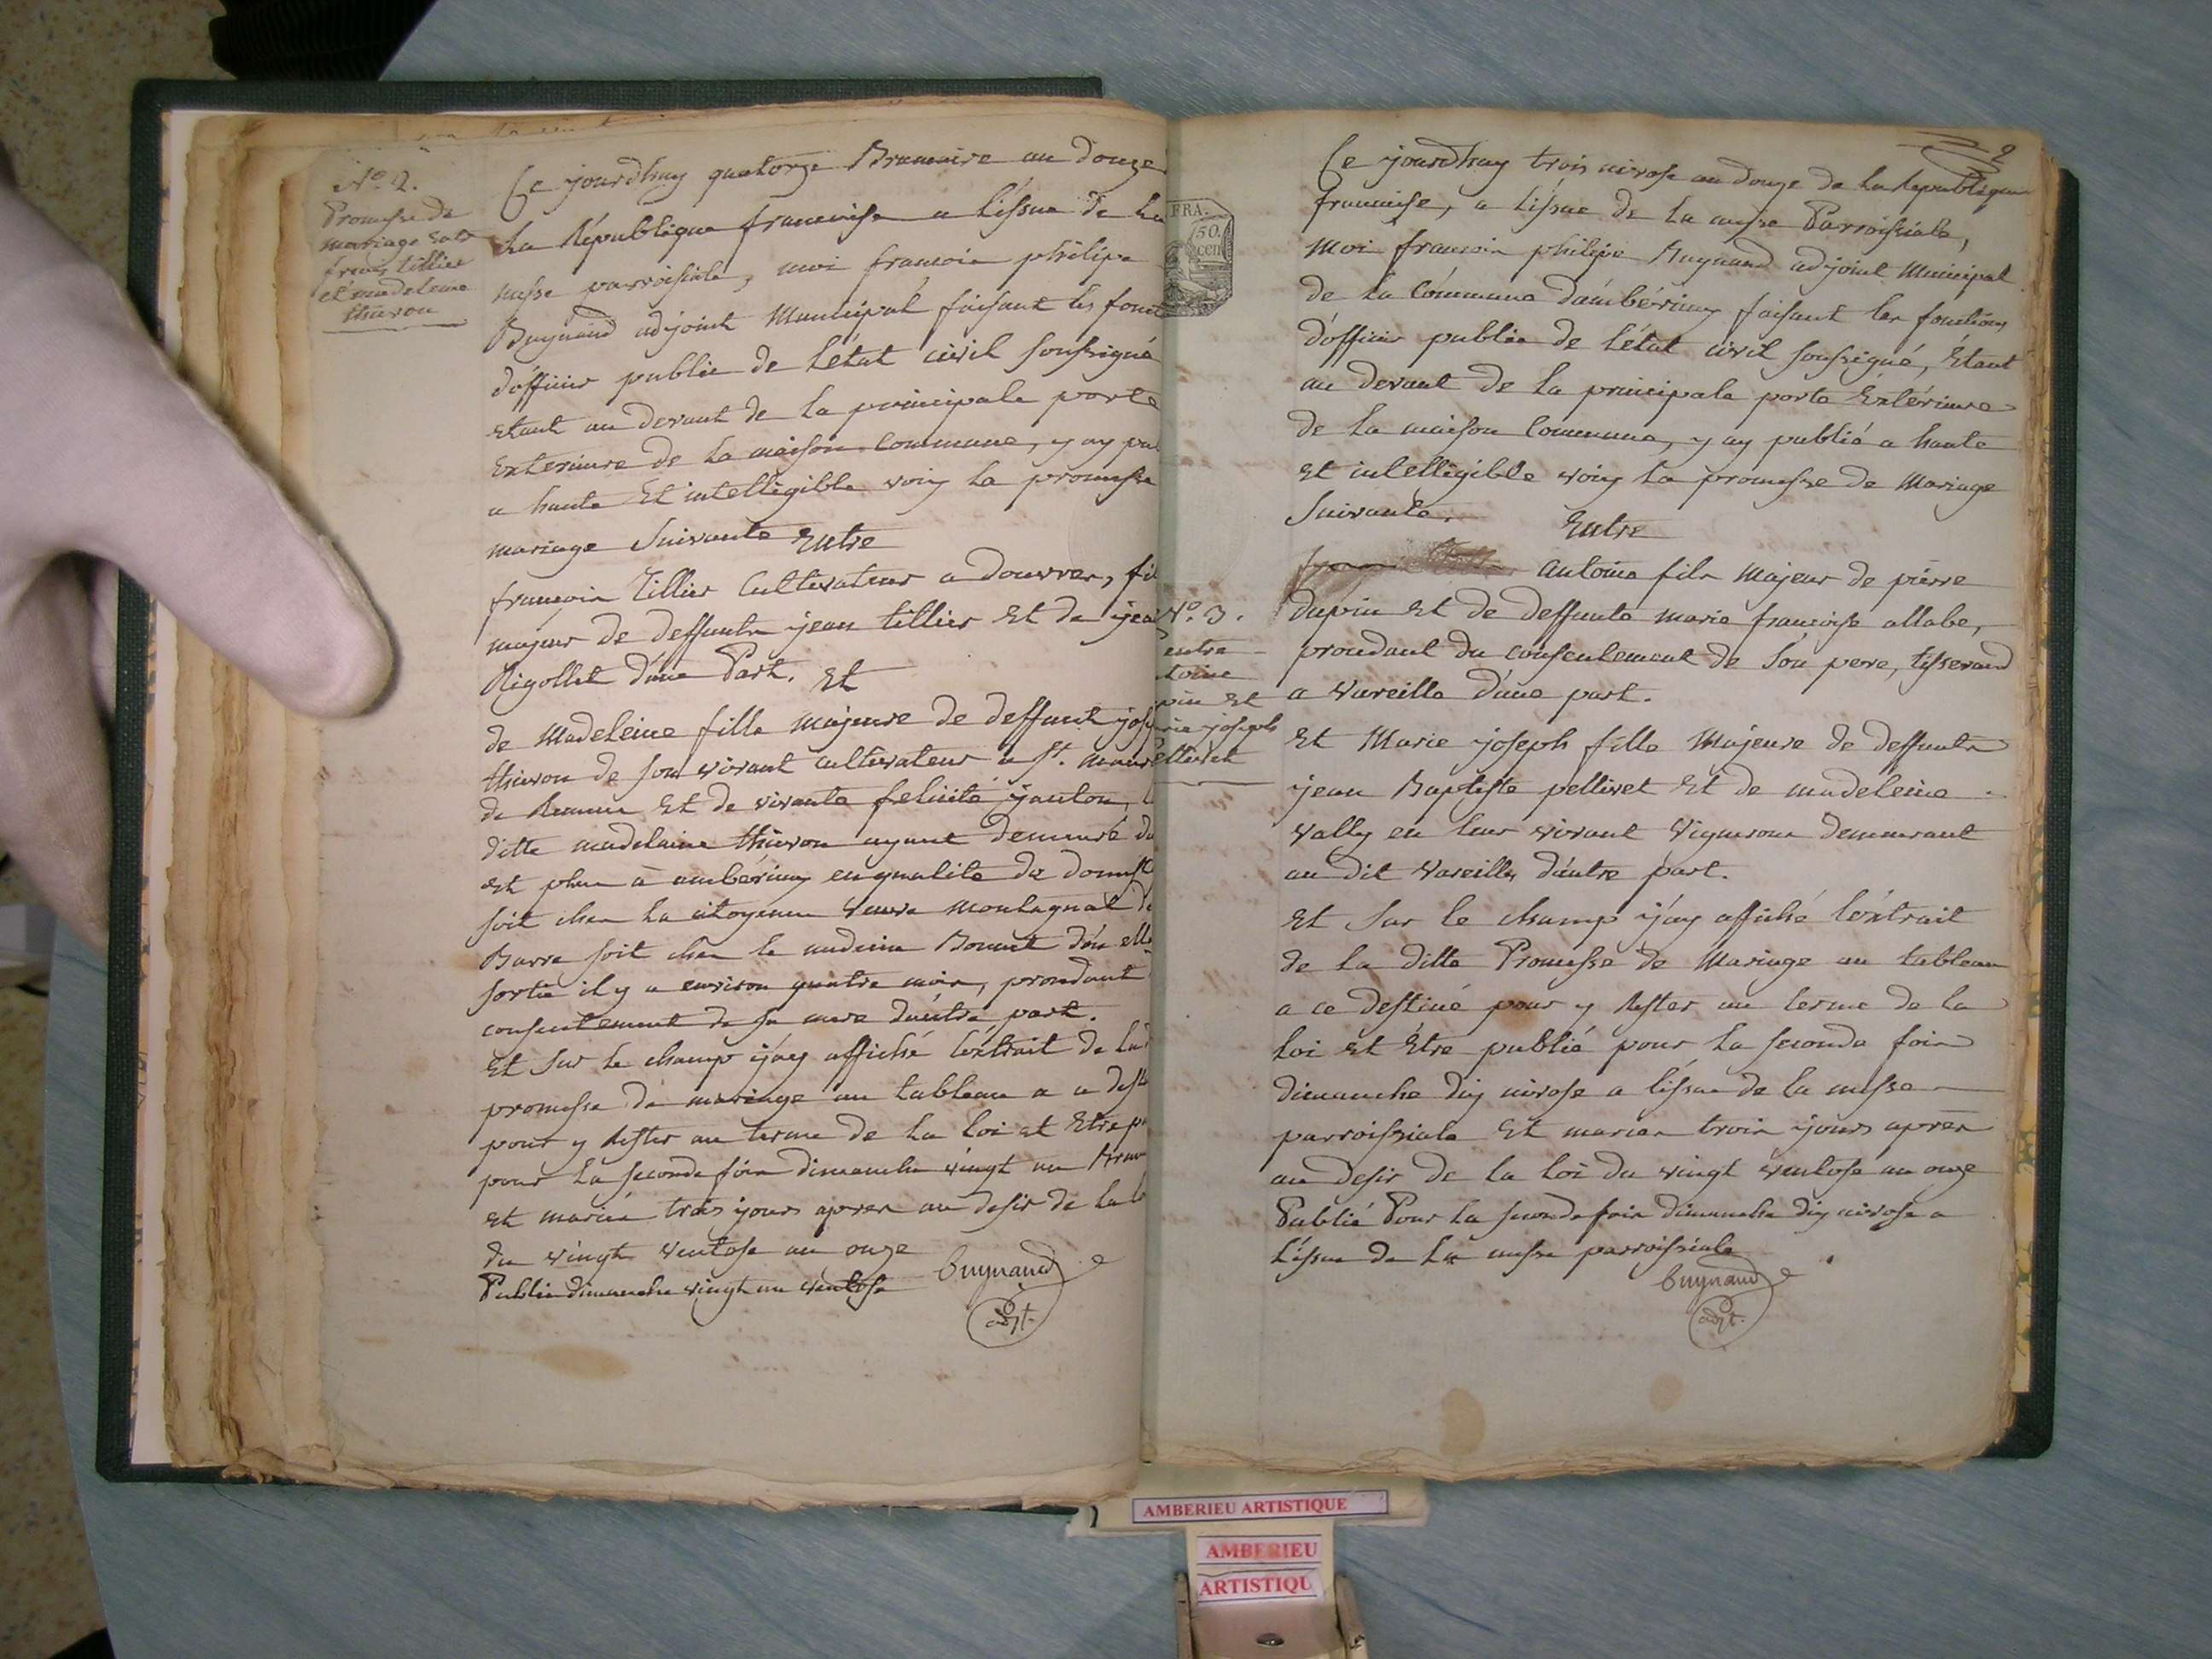 N.o 2.
Promesse de
mariage entre
françois tillier
et madeleine
thievon
Ce jourdhuy quatorze Brumaire an douze
La République françoise a l'issue de la
messe parroissiale, moi françois philipe
Buynand adjoint Municipal faisant les fonct
d'officier public de letat civil soussigné
etant au devant de la principale porte
Exterieure de la maison commune, y ay pu
a haute Et intelligible voix la promesse
mariage Suivante Entre
françois Tillier Cultivateur a douvres, fil
majeur de deffunts jean tillier Et de jea
Rigollet d'une Part. Et
de Madeleine fille majeure de deffunt jose
thievon de son vivant cultivateur a St. maur
de Remens Et de vivante felicité janton, l
ditte madelaine thievon ayant demeuré da
et plus à ambérieux en qualité de domest
soit chez la citoyenne veuve montagnat de
Barre soit chez le medecin Bonnet d'ou elle
sortie il y a environ quatre mois, procedant
consentement de sa mere d'autre part.
Et sur le champ j'ay affiché l'extrait de lad
promesse de mariage au tableau a ce dest
pour y Rester au terme de la loi et Etre p
pour la seconde fois dimanche vingt un Brum
et mariés trois jours apres au desir de la l
du vingt ventose an onze
Publié dimanche vingt un ventose
buynand
adjt.
2
FRA.
50.
cen
Ce jourdhuy trois nivose an douze de la Republique
francoise, a l'issue de la messe Parroissiale,
Moi francois philipe Buynand adjoint Municipal
de la Commune dambérieux faisant les fonctions
d'officier public de l'état civil soussigné, Etant
au devant de la principale porte Extérieure
de la maison Commune, y ay publié a haute
et intelligible voix la promesse de Mariage
Suivante. Entre
N.o 3.
entre
toine
pin Et
rie joseph
ellivet
Antoine fils majeur de pierre
dupin Et de deffunte marie françoise allabe,
procedant du consentement de son pere, tisserand
a Vareille d'une part.
Et Marie joseph fille Majeure de deffunts
jean Baptiste pellivet Et de madeleine
vally en leur vivant Vignerons demeurant
au dit Vareilles d'autre part.
Et Sur le champ j'ay affiché l'extrait
de la ditte Promesse de Mariage au tableau
a ce destiné pour y Rester au terme de la
loi Et Etre publié pour la seconde fois
dimanche dix nivose a l'issue de la messe
parroissiale Et mariés trois jours après
au desir de la loi du vingt ventose an onze
Publié Pour la seconde fois dimanche dix nivose a
L'issue de la messe parroissiale
buynand
adjt.
AMBERIEU ARTISTIQUE
AMBERIEU
ARTISTIQU